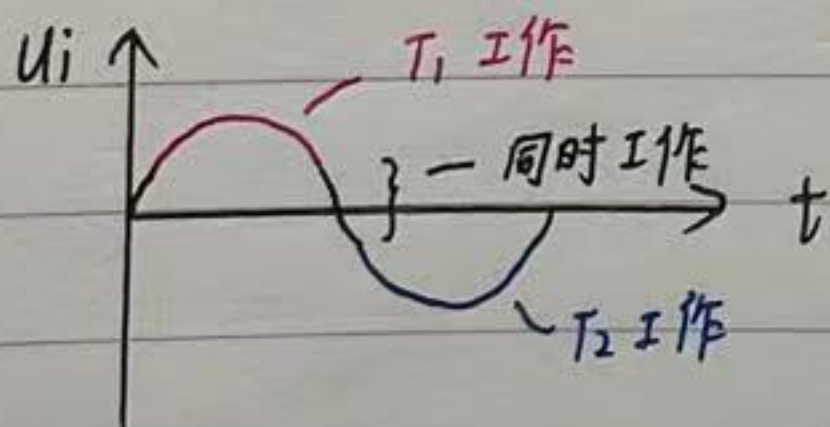 Ui
T₁ 工作
一 同时工作
t
T₂ 工作